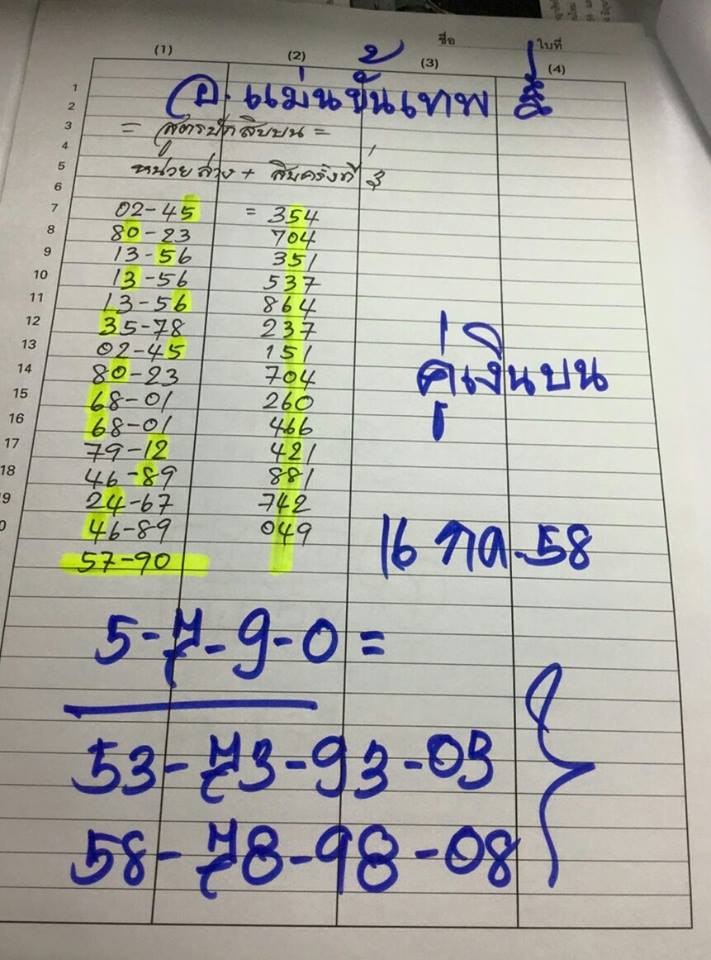 ชื่อ ใบที่
(1) (2) (3) (4)
1 อ.แม่นขั้นเทพ
2
3 = สูตรปักสิบบน =
4
5 หน่วยล่าง + สิบครั้งที่
6
7 02-45 = 354
8 80-23 704
9 13-56 351
10 13-56 537
11 13-56 864
12 35-78 237
13 02-45 151
14 80-23 704
15 68-01 260
16 68-01 466
17 79-12 421
18 46-89 881
9 24-67 742
0 46-89 049
57-90
คู่เงินบน
16 กค.58
5-7-9-0=
53-73-93-03
58-78-98-08